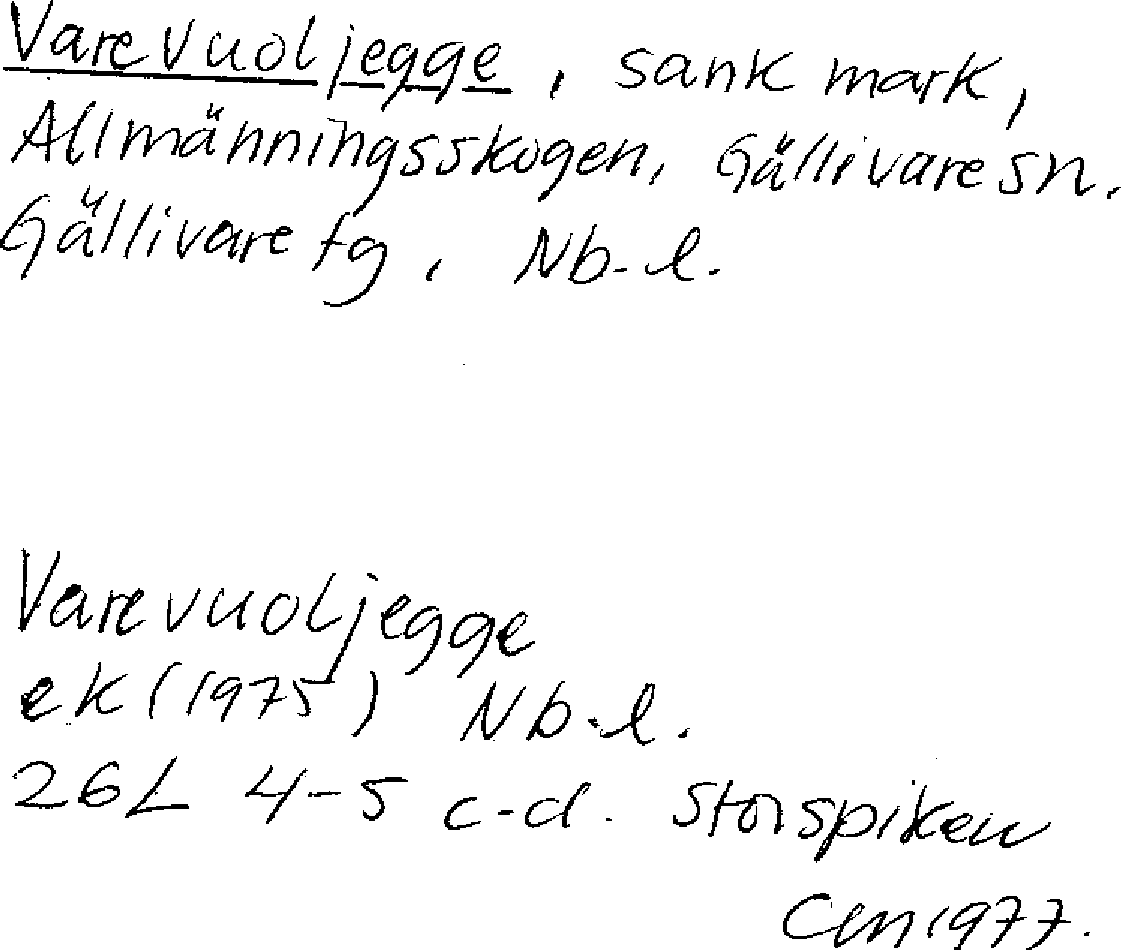 Varevuoljegge, sank mark,
Allmänningsskogen, Gällivare sn.
Gällivare tg, Nb-l.
Varevuoljegge
ek (1975) Nb.l.
26L 4-5 c-d. Storspiken
1977.